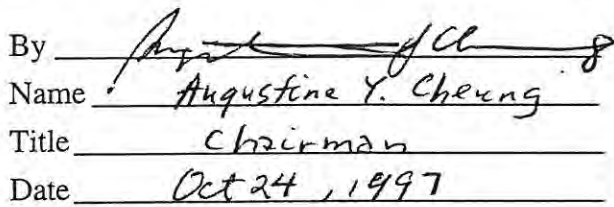 By
Name Augustine Y. Cheung
Title Chairman
Date Oct 24, 1997